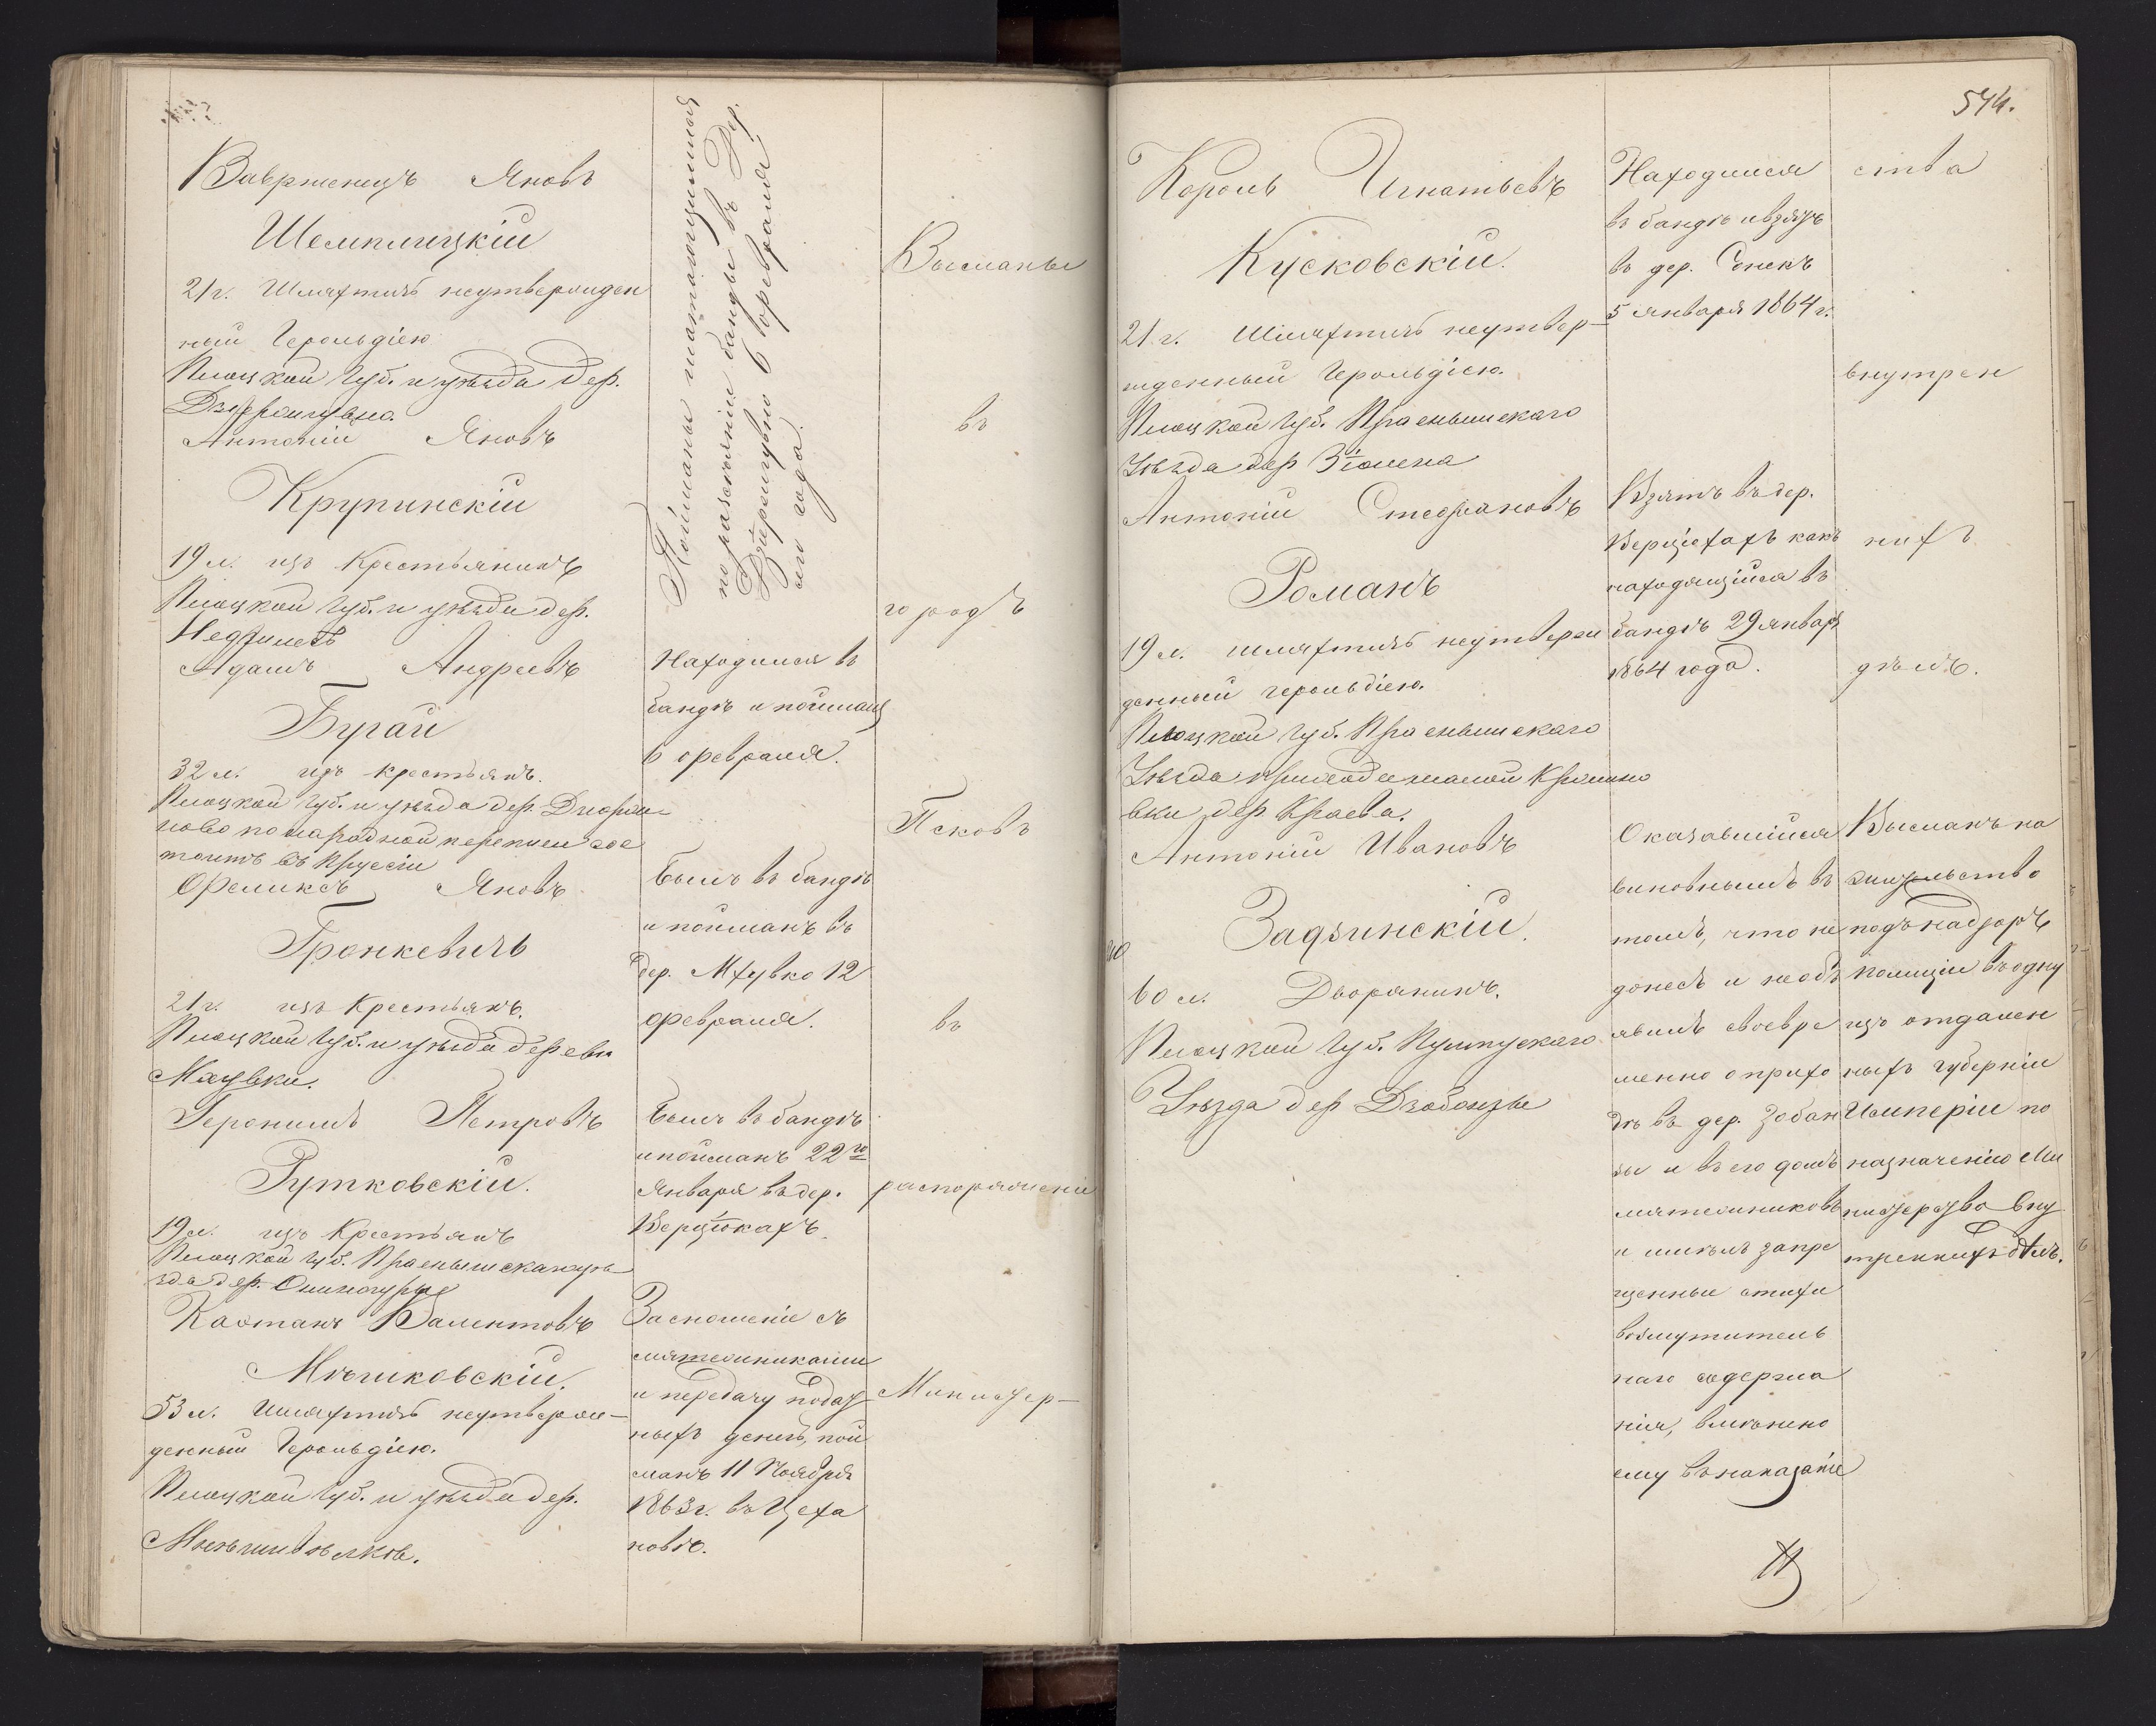 Вавржинецъ Яновъ
Шемплицкій
21 г. Шляхтичъ неутвержден
ный Герольдіею
Плоцкой Губ. и уѣзда Дер.
Антоній Яновъ
Крупинскій
19 л. изъ Крестьянинъ
Плоцкой Губ. и уѣзда дер.
Адамъ Андреевъ
Бугай
32 л. изъ крестьянъ.
Плоцкой Губ. и уѣзда дер.
ново по народной переписи сос
тоитъ въ Пруссіи
Феликсъ Яновъ
Гронкевичъ
21 г. изъ Крестьянъ.
Плоцкой Губ. и уѣзда деревн
Мхувки.
Геронимъ Петровъ
Рутковскій.
19 л. изъ Крестьянъ
Плоцкой Губ. Праснышскаго уѣ
зда дер.
Каэтанъ Валентовъ
Мѣшковскій.
53 л. Шляхтичъ неутверж-
денный Герольдіею.
Плоцкой Губ. и уѣзда дер.
Пойманы шатающимися
по разсѣяніи банды въ Дер.
6 февраля
сего года.
Находился въ
бандѣ и пойманъ
6 февраля.
Былъ въ бандѣ
и пойманъ въ
дер. Мхувко 12
февраля.
Былъ въ бандѣ
и пойманъ 22го
Января въ дер.
За сношеніе съ
мятежниками
и передачу податъ
ныхъ денегъ, пой
манъ 11 Ноября
1863 г. въ Цеха
новѣ.
Высланы
въ
городъ
Псковъ
въ
распоряженіе
Министер-
574.
Кароль Игнатьевъ
Кусковскій.
21 г. Шляхтичъ неутвер-
жденный Герольдіею.
Плоцкой Губ. Праснышскаго
Уѣзда дер Зіомена
Антоній Стефановъ
Романъ
19 л. шляхтичъ неутверж
денный герольдіею.
Плоцкой Губ. Праснышскаго
Уѣзда
вки дер Краева.
Антоній Ивановъ
Задзинскій.
60 л. Дворянинъ.
Плоцкой Губ. Пултускаго
Уѣзда дер
Находился
въ бандѣ и взятъ
въ дер. Сонскъ
5 января 1864 г.
Взятъ въ дер.
какъ
находящійся въ
бандѣ 29 январ
1864 года.
Оказавшійся
виновнымъ въ
томъ, что не
донесъ и необъ
явилъ своевре
менно о прихо
дѣ въ дер. Зобан
зы и въ его домъ
мятежниковъ
и имѣлъ запре
щенные стихи
возмутитель
наго содержа
нія, вмѣнено
ему въ наказаніе
ства
внутрен
нихъ
дѣлъ.
Высланъ на
жительство
подъ надзоръ
полиціи въ одну
изъ отдален
ныхъ губерній
Имперіи по
назначенію Ми
нистерства Вну
треннихъ дѣлъ.